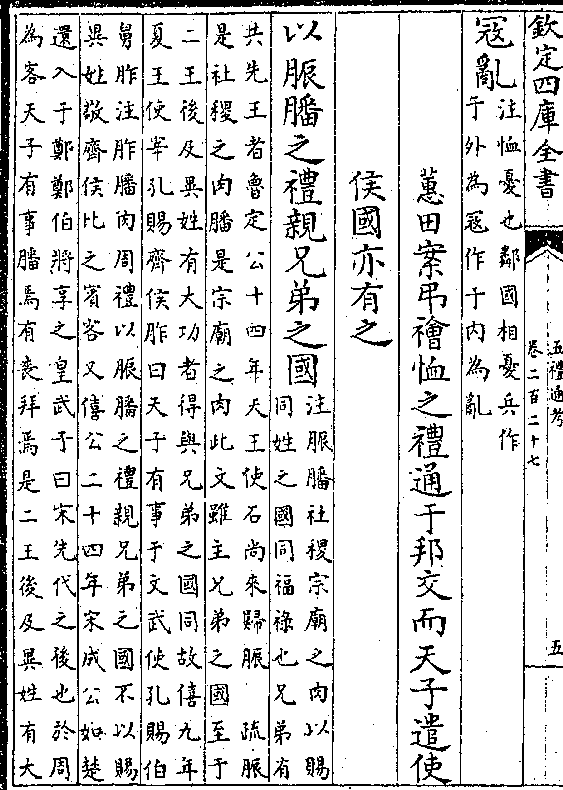 欽定四庫全書
五禮通考
卷二百二十七
五
寇亂
注恤憂也鄰國相憂兵作
于外為寇作于内為亂
蕙田案弔禬恤之禮通于邦交而天子遣使
侯國亦有之
以脤膰之禮親兄弟之國
注脤膰社稷宗廟之肉以賜
同姓之國同福祿也兄弟有
共先王者魯定公十四年天王使石尚來歸脤 疏脤
是社稷之肉膰是宗廟之肉此文雖主兄弟之國至于
二王後及異姓有大功者得與兄弟之國同故僖九年
夏王使宰孔賜齊侯胙曰天子有事于文武使孔賜伯
舅胙注胙膰肉周禮以脤膰之禮親兄弟之國不以賜
異姓敬齊侯比之賓客又僖公二十四年宋成公如楚
還入于鄭鄭伯將享之皇武子曰宋先代之後也於周
為客天子有事膰焉有喪拜焉是二王後及異姓有大